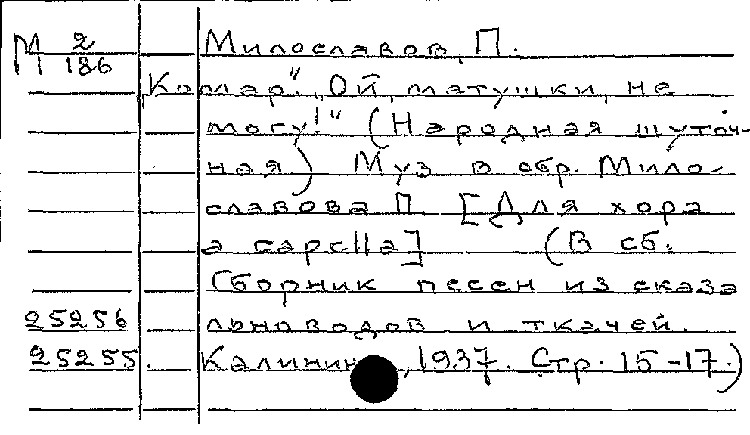 М 2/186 Милославов, П.
„Комар“. „Ой, матушки, не
могу!“ (Народная шуточ-
ная) Муз в обр. Мило-
славова П. [Для хора
a capella] (В сб.
Сборник песен из сказа
льноводов и ткачей.
Калинин, 1937. Стр. 15-17.)
25256
25255.